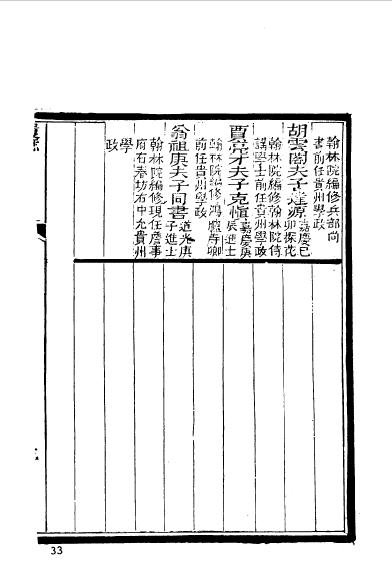 翰林院編修兵部尚
書前任貴州學政
胡雲閣夫子達源 嘉慶己
卯探花
翰林院編修翰林院侍
講學士前任貴州學政
賈 才夫子克慎 嘉慶庚
辰進士
翰林院編修鴻臚寺卿
前任貴州學政
翁祖庚夫子同書 道光庚
子進士
翰林院編修現任詹事
府右春坊右中允貴州
學
政
33